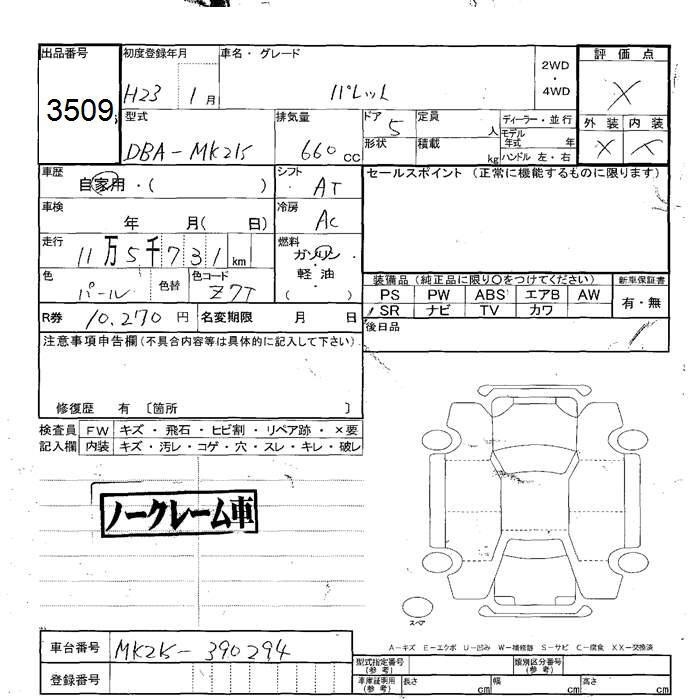 出品番号 初度登録年月 車名・グレード 2WD・4WD 評価点
3509 H23 1月 パレット X
型式 排気量 ドア 定員 ディーラー・並行 外装 内装
DBA-MK21S 660cc 5 人 モデル年式 年 X X
形状 積載 kg ハンドル 左・右
車歴 シフト セールスポイント (正常に機能するものに限ります)
自家用・( ) AT
車検 冷房
年 月( 日) AC
走行 燃料
11万5千731km ガソリン・軽油
( )
色 色替 色コード 装備品 (純正品に限り〇をつけてください) 新車保証書
パール Z7T PS PW ABS エアB AW 有・無
SR ナビ TV カワ
R券 10,270円 名変期限 月 日 後日品
注意事項申告欄(不具合内容等は具体的に記入して下さい)
修復歴 有 〔箇所 〕
検査員 FW キズ・飛石・ヒビ割・リペア跡・×要
記入欄 内装 キズ・汚レ・コゲ・穴・スレ・キレ・破レ
ノークレーム車
スペア
A-キズ E-エクボ U-凹み W-補修跡 S-サビ C-腐食 XX-交換済
車台番号 MK21S-390294
型式指定番号(参考) 類別区分番号(参考)
登録番号 車庫証明用(参考) 長さ cm 幅 cm 高さ cm